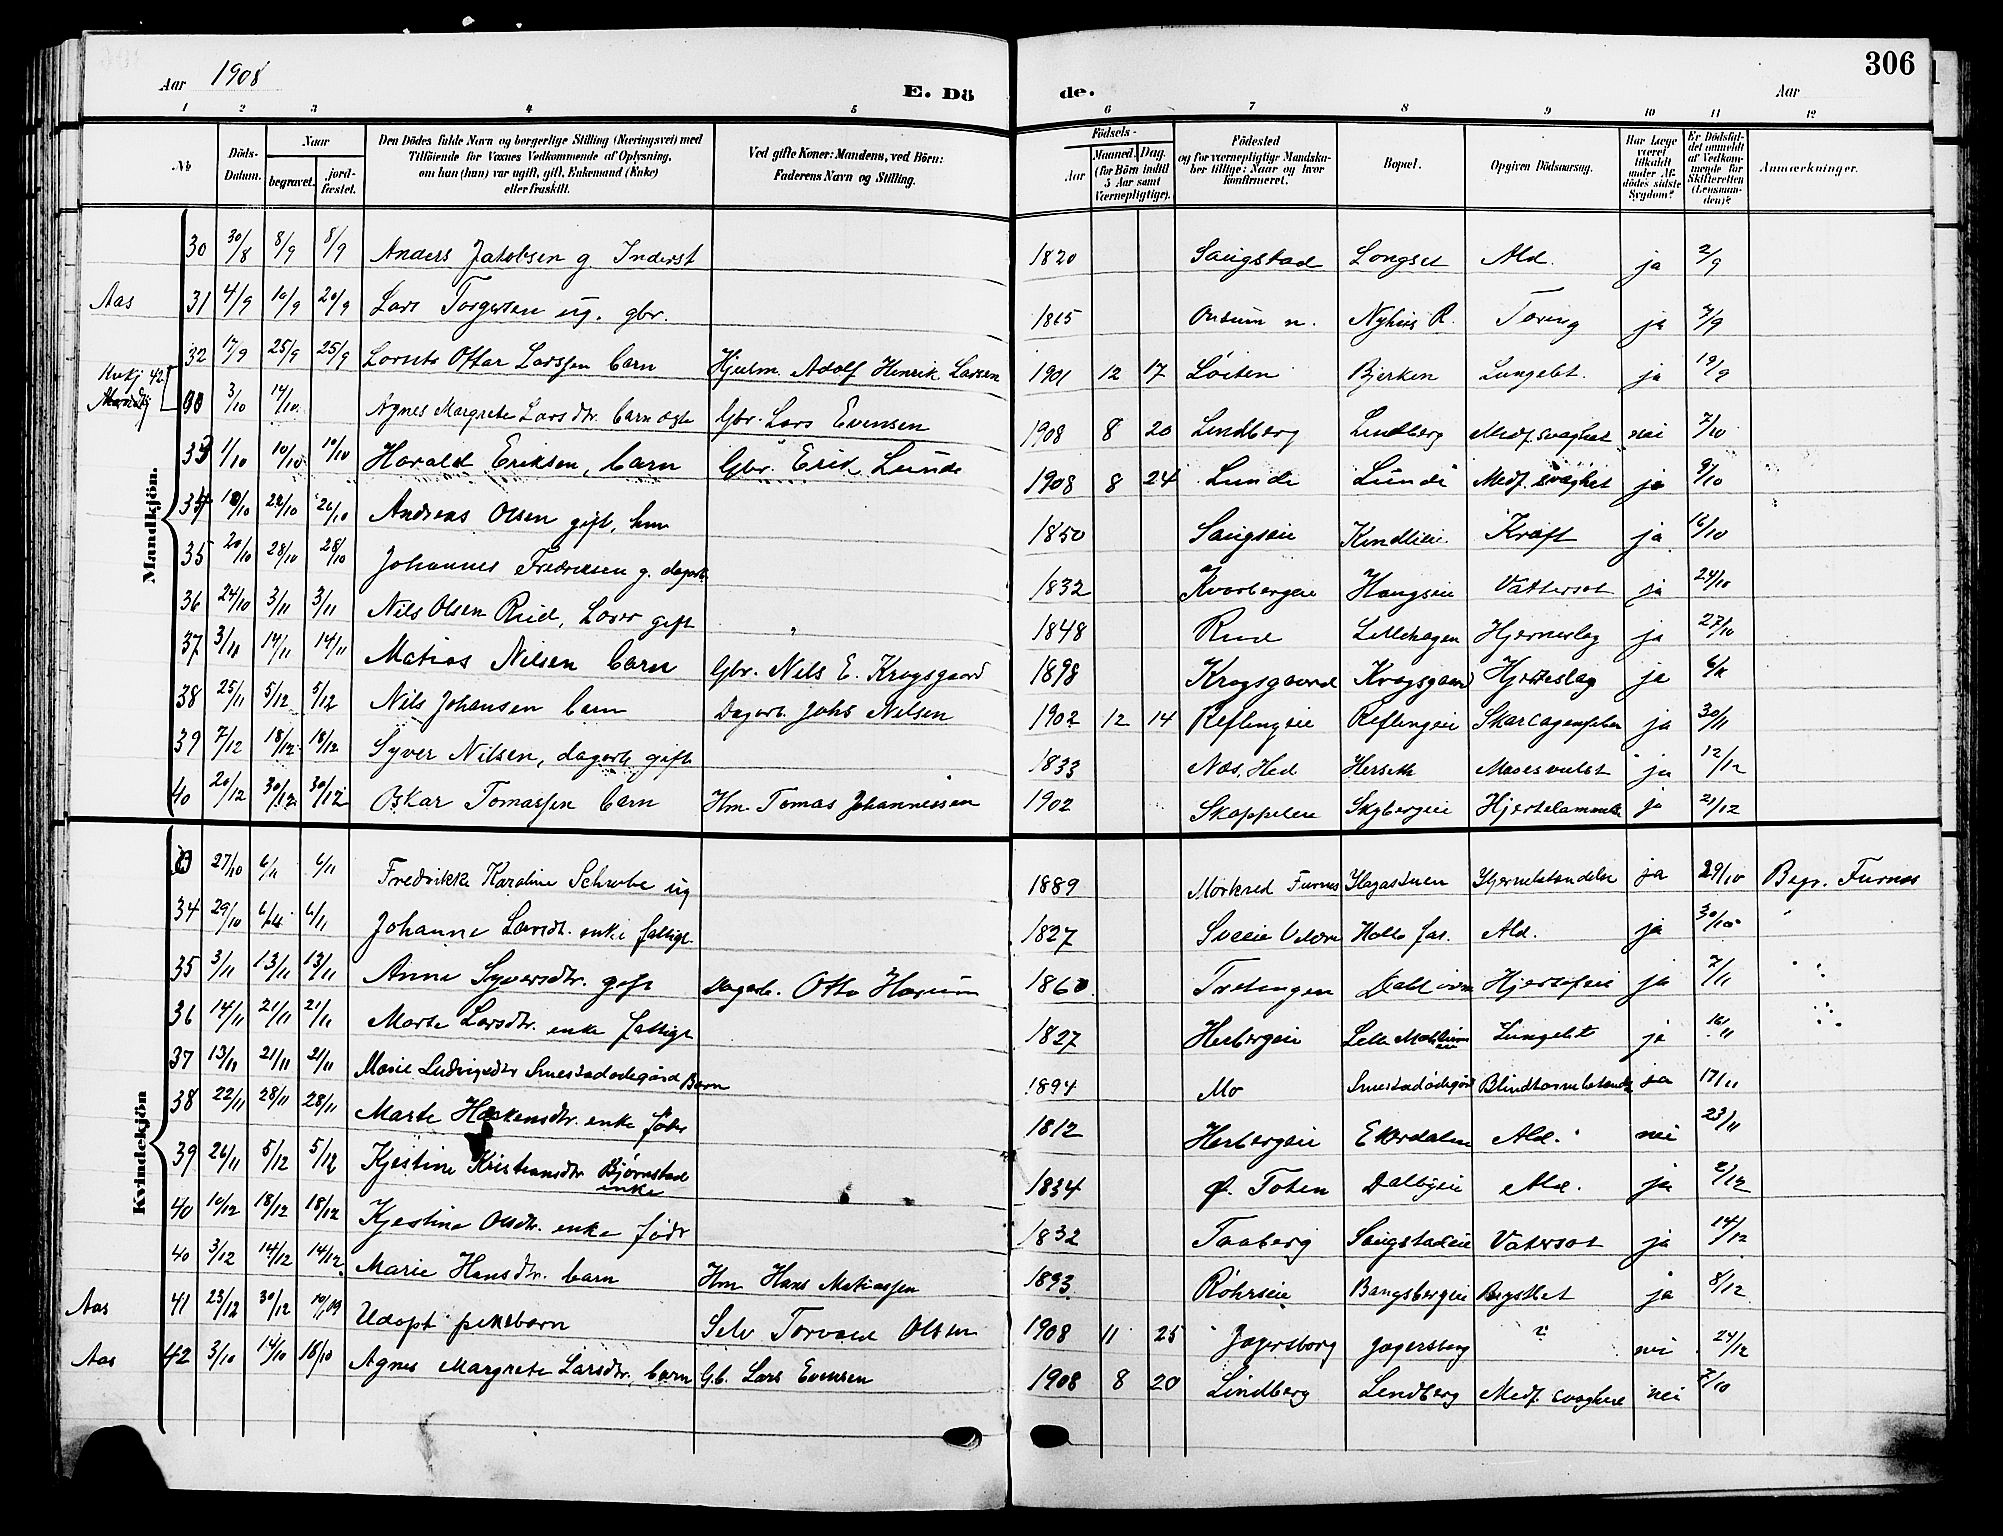 306
Aar 1908 E. Dö de. Aar
1 2 3 4 5 6 7 8 9 10 11 12
No
Döds-Datum.
Naar begravet. jordfæstet.
Den Dödes fulde Navn og borgerlige Stilling (Næringsvei) med Tilföiende for Voxnes Vedkommende af Oplysning, om han (hun) var ugift, gift, Enkemand (Enke) eller fraskilt.
Ved gifte Koner: Mandens, ved Börn: Faderens Navn og Stilling.
Födsels- Aar Maaned. Dag. (for Börn indtil 5 Aar samt Værnepligtige).
Födested og for værnepligtige Mandskaber tillige: Naar og hvor konfirmeret.
Bopæl.
Opgiven Dödsaarsag.
Har Læge været tilkaldt under Afdödes sidste Sygdom?
Er Dödsfaldet anmeldt af Vedkommende for Skifteretten (Lensmanden)?
Anmærkninger.
Mandkjön.
30 30/8 8/9 8/9 Anders Jakobsen g. Inderst 1820 Saugstad Longset Ald. ja 2/9
Aas 31 4/9 10/9 20/9 Lars Torgersen ug. gbr. 1865 n. Nyhus R. Tæring ja 7/9
32 17/9 25/9 25/9 Lornts Ottar Larssen barn Hjulm. Adolf Henrik Larsen 1901 12 17 Löiten Bjerken Lungebt. ja 19/9
Kvkj 42 3/10 14/10 Agnes Margrete Larsdtr. barn ægte Gbr. Lars Evensen 1908 8 20 Lindberg Lindberg Medf. svaghet nei 7/10
33 1/10 10/10 10/10 Harald Eriksen, barn Gbr. Erik Lunde 1908 8 24 Lunde Lunde Medf. svaghet ja 9/10
34 10/10 22/10 26/10 Andreas Olsen gift, hm 1850 Saugseie Kindlieie Kræft ja 16/10
35 20/10 28/10 28/10 Johannes Fredriksen g. dagarb. 1832 Kvarbergeie Haugseie Vattersot ja 24/10
36 24/10 3/11 3/11 Nils Olsen Rud, Loser gift 1848 Rud Lillehagen Hjerneslag ja 27/10
37 3/11 14/11 14/11 Matias Nilsen barn Gbr. Nils E. Krogsgaard 1898 Krogsgaard Krogsgaard Hjerteslag ja 6/11
38 25/11 5/12 5/12 Nils Johansen barn Dagarb. Johs Nilsen 1902 12 14 Reflingeie Reflingeie Skarlagensfeber ja 30/11
39 7/12 18/12 18/12 Syver Nilsen, dagarb. gift 1833 Næs, Hed Herseth Mavesvulst ja 12/12
40 20/12 30/12 30/12 Oskar Tomassen barn Hm. Tomas Johannessen 1902 Skappeleie Skybergeie Hjertelammelse ja 21/12
Kvindekjön
27/10 6/11 6/11 Fredrikke Karoline Schube ug 1889 Mørkved Furnes Hagastuen Hjernebetændelse ja 29/10 Begr. Furnes
34 29/10 6/11 6/11 Johanne Larsdt. enke fattigl. 1827 Sveeie Veldre Holte fat. Ald. ja 30/10 "
35 3/11 13/11 13/11 Anne Syversdtr. gift Dagarb. Otto Harum 1860 Tretengen Dalbieie Hjertefeil ja 7/11
36 14/11 21/11 21/11 Marte Larsdtr. enke fattigl 1827 Herbergeie Lille Mæhlum eie Lungebt ja 16/11
37 13/11 21/11 21/11 Marie Ludvigsdtr Smestadødegård Barn 1894 Mo Smestadødegård Blindtarmbetændelse ja 17/11
38 22/11 28/11 28/11 Marte Haakensdtr. enke føder 1812 Herbergeie Ekerdalen Ald. nei 23/11
39 26/11 5/12 5/12 Kjestine Kristiansdtr Bjørnstad enke 1834 Ø. Toten Dalbyeie Ald. ja 2/12
40 10/12 18/12 18/12 Kjestine Olsdtr. enke fødr 1832 Faaberg Saugstadeie Vatersot ja 14/12
40 3/12 14/12 14/12 Marie Hansdtr. barn Hm Hans Matiassen 1893 Röhrseie Bangsbergeie Brystbet ja 8/12
Aas 41 23/12 30/12 10/1 09 Udøpt pikebarn Selv Torvald Olsen 1908 11 25 Jagersborg Jagersberg ? nei 24/12
Aas 42 3/10 14/10 18/10 Agnes Margrete Larsdtr. barn G.b. Lars Evensen 1908 8 20 Lindberg Lindberg Medf. svaghed nei 7/10